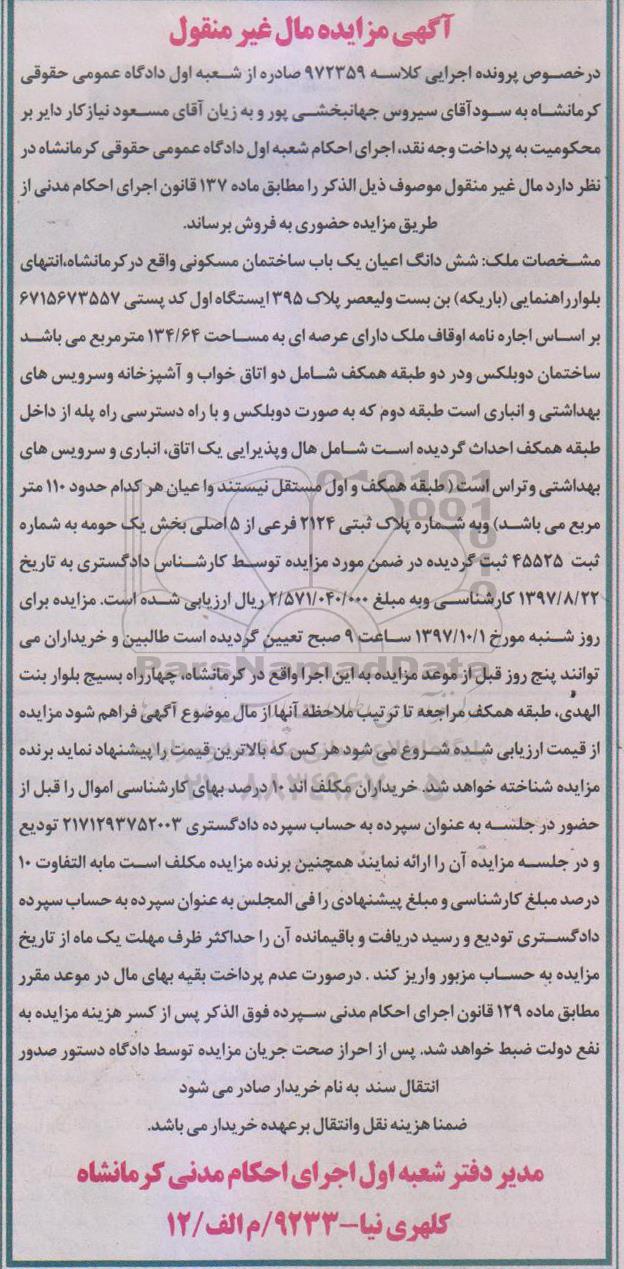 آگهی مزایده مال غیر منقول
درخصوص پرونده اجرایی کلاسه ۹۷۲۳۵۹ صادره از شعبه اول دادگاه عمومی حقوقی
کرمانشاه به سودآقای سیروس جهانبخشی پور و به زیان آقای مسعود نیازکار دایر بر
محکومیت به پرداخت وجه نقد، اجرای احکام شعبه اول دادگاه عمومی حقوقی کرمانشاه در
نظر دارد مال غیر منقول موصوف ذیل الذکر را مطابق ماده ۱۳۷ قانون اجرای احکام مدنی از
طریق مزایده حضوری به فروش برساند.
مشخصات ملک: شش دانگ اعیان یک باب ساختمان مسکونی واقع درکرمانشاه،انتهای
بلوارراهنمایی (باریکه) بن بست ولیعصر پلاک ۳۹۵ ایستگاه اول کد پستی ۶۷۱۵۶۷۳۵۵۷
بر اساس اجاره نامه اوقاف ملک دارای عرصه ای به مساحت ۱۳۴/۶۴ مترمربع می باشد
ساختمان دوبلکس ودر دو طبقه همکف شامل دو اتاق خواب و آشپزخانه وسرویس های
بهداشتی و انباری است طبقه دوم که به صورت دوبلکس و با راه دسترسی راه پله از داخل
طبقه همکف احداث گردیده است شامل هال وپذیرایی یک اتاق، انباری و سرویس های
بهداشتی وتراس است ( طبقه همکف و اول مستقل نیستند وا عیان هر کدام حدود ۱۱۰ متر
مربع می باشد) وبه شماره پلاک ثبتی ۲۱۲۴ فرعی از ۵ اصلی بخش یک حومه به شماره
ثبت ۴۵۵۲۵ ثبت گردیده در ضمن مورد مزایده توسط کارشناس دادگستری به تاریخ
۱۳۹۷/۸/۲۲ کارشناسی وبه مبلغ ۲/۵۷۱/۰۴۰/۰۰۰ ریال ارزیابی شده است. مزایده برای
روز شنبه مورخ ۱۳۹۷/۱۰/۱ ساعت ۹ صبح تعیین گردیده است طالبین و خریداران می
توانند پنج روز قبل از موعد مزایده به این اجرا واقع در کرمانشاه، چهارراه بسیج بلوار بنت
الهدی، طبقه همکف مراجعه تا ترتیب ملاحظه آنها از مال موضوع آگهی فراهم شود مزایده
از قیمت ارزیابی شده شروع می شود هر کس که بالاترین قیمت را پیشنهاد نماید برنده
مزایده شناخته خواهد شد. خریداران مکلف اند ۱۰ درصد بهای کارشناسی اموال را قبل از
حضور در جلسه به عنوان سپرده به حساب سپرده دادگستری ۲۱۷۱۲۹۳۷۵۲۰۰۳ تودیع
و در جلسه مزایده آن را ارائه نمایند همچنین برنده مزایده مکلف است مابه التفاوت ۱۰
درصد مبلغ کارشناسی و مبلغ پیشنهادی را فی المجلس به عنوان سپرده به حساب سپرده
دادگستری تودیع و رسید دریافت و باقیمانده آن را حداکثر ظرف مهلت یک ماه از تاریخ
مزایده به حساب مزبور واریز کند . درصورت عدم پرداخت بقیه بهای مال در موعد مقرر
مطابق ماده ۱۲۹ قانون اجرای احکام مدنی سپرده فوق الذکر پس از کسر هزینه مزایده به
نفع دولت ضبط خواهد شد. پس از احراز صحت جریان مزایده توسط دادگاه دستور صدور
انتقال سند به نام خریدار صادر می شود
ضمنا هزینه نقل وانتقال برعهده خریدار می باشد.
مدیر دفتر شعبه اول اجرای احکام مدنی کرمانشاه
کلهری نیا-۹۲۳۳/م الف/۱۲
ParsNamadData